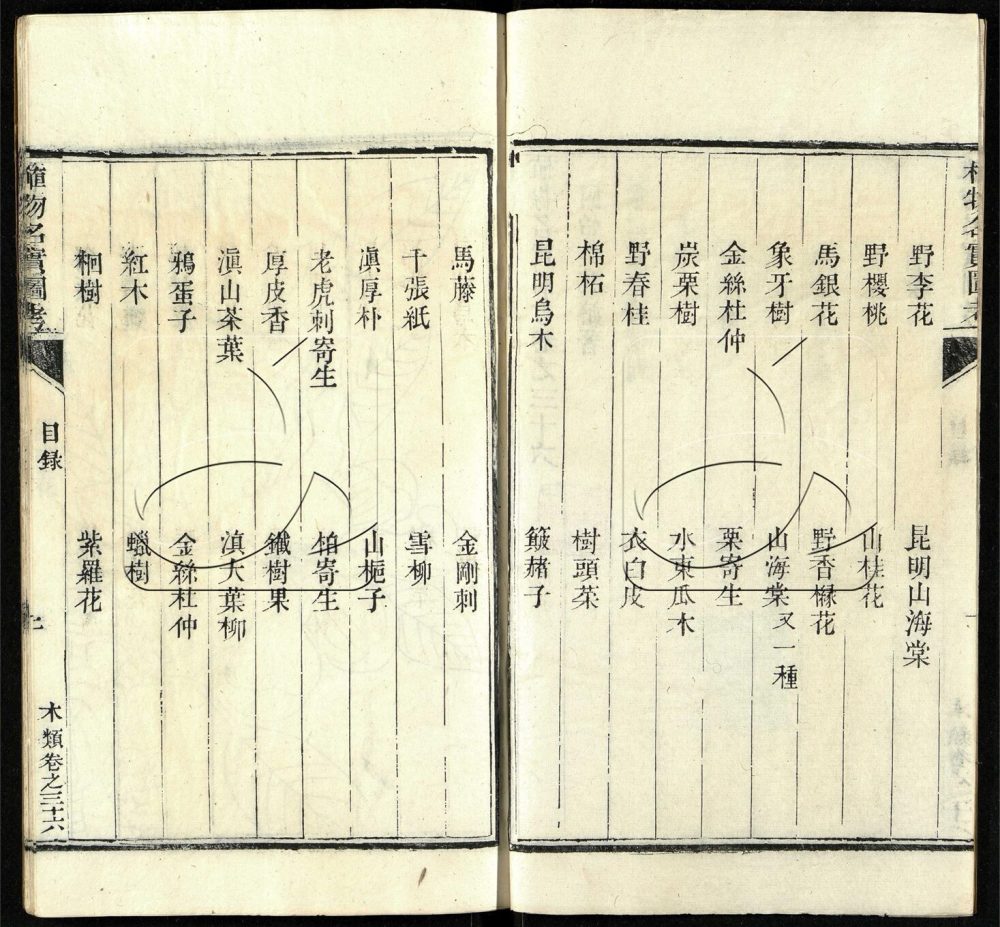 植物名實圖考
野李花 昆明山海棠
野櫻桃 山桂花
馬銀花 野香櫞花
象牙樹 山海棠又一種
金絲杜仲 栗寄生
炭栗樹 水東瓜木
野春桂 衣白皮
棉柘 樹頭菜
昆明烏木 簸赭子
馬藤 金剛刺
千張紙 雪柳
滇厚朴 山梔子
老虎刺寄生 柏寄生
厚皮香 鐵樹果
滇山茶葉 滇大葉柳
鴉蛋子 金絲杜仲
紅木 蠟樹
桐樹 紫羅花
植物名實圖考 目録 木類卷之三十六